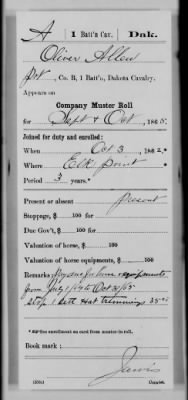 A 1 Batt'n Cav. Dak.
Oliver Allen
Pvt, Co. B, 1 Batt'n, Dakota Cavalry.
Appears on
Company Muster Roll
for Sept & Oct, 1865.
Joined for duty and enrolled:
When Oct 3, 1862.*
Where Elk Point
Period 3 years.*
Present or absent Present
Stoppage, $ 100 for
Due Gov't, $ 100 for
Valuation of horse, $ 100
Valuation of horse equipments, $ 100
Remarks: Pay due for horse equipments
from July 1/64 to Oct 31/65
Stop 1 Sett Hat trimmings
*See enrollment on card from muster-in roll.
Book mark:
Jarvis
Copyist.